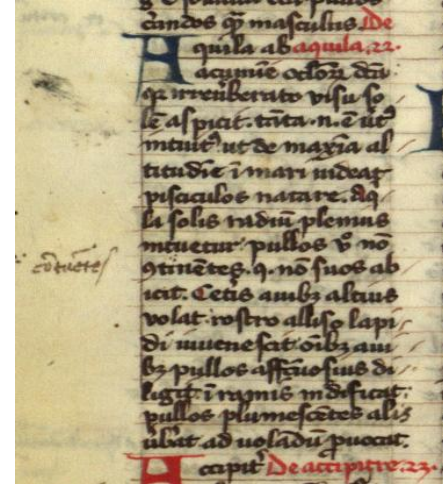 cundos qͣ masculus. De
Aquila ab aquila. 22.
acumīe oclorꝝ dc̄a
qꝛ irreuberato uisu so
lē aspicit. tāta .n. ē uiꝰ
intuitꝰ ut de maxīa al
titudīe ī mari uideat
pisciculos natare. Aq̄
la solis radiū plenius
intuetur. pullos v̊ nō
ꝯtinētes .q. nō suos ab
ꝯtuētes
icit. Cetis auibꝫ altius
volat. rostro alliso lapi
di iuuenescit. oībꝫ aui
bꝫ pullos affc̄uosius di
ligit. ī ramis nidificat.
pullos plumescētes alis
ūbat ad uolādū ꝓuocat.
Accipit᷑ De accipitre. 23.